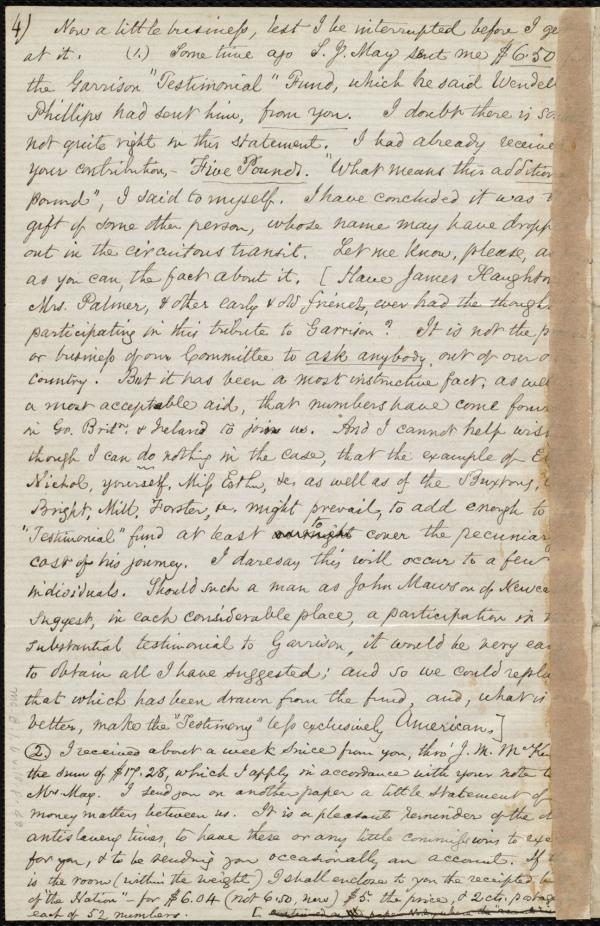 4) Now a little business, lest I be interrupted before I ge
at it. (1.) Some time ago S. J. May sent me $6.50
the Garrison "Testimonial" Fund, which he said Wendel
Phillips had sent him, from you. I doubt there is so
not quite right in this statement. I had already receive
your contribution, - Five Pounds. "What means this addition
pound", I said to myself. I have concluded it was t
gift of some other person, whose name may have dropp
out in the circuitous transit. Let me know, please, a
as you can, the fact about it. [Have James Haughto
Mrs. Palmer, & other early & old friends, ever had the though
participating in this tribute to Garrison? It is not the p
or business of our Committee to ask anybody, out of our o
country. But it has been a most instructive fact, as wel
a most acceptable aid, that numbers have come for
in Go. Britn. & Ireland to join us. And I cannot help wis
though I can do nothing in the case, that the example of E
Nichol, yourself, Miss Estlin, &c. as well as of the Buxtons,
Bright, Mill, Forster, &c. might prevail, to add enough to
"Testimonial" fund at least to cover the pecuniar
cost of his journey. I daresay this will occur to a few
individuals. Should such a man as John Mawson of Newca
suggest, in each considerable place, a participation in
substantial testimonial to Garrison, it would be very ea
to obtain all I have suggested; and so we could repla
that which has been drawn from the fund, and, what is
better, make the "Testimony" less exclusively American.]
(2.) I received about a week since from you, thro' J. M. McKi
the sum of $17.28, which I apply in accordance with your note t
Mrs. May. I send you on another paper a little statement of
money matters between us. It is a pleasant reminder of the o
antislavery times, to have these or any little commissions to exe
for you, & to be sending you occasionally an account. If t
is the room (within the weight) I shall enclose to you the receipted b
of "the Nation" - for $6.04 (not 6.50, now) $5. the price, & 2 cts. postag
each of 52 numbers. [